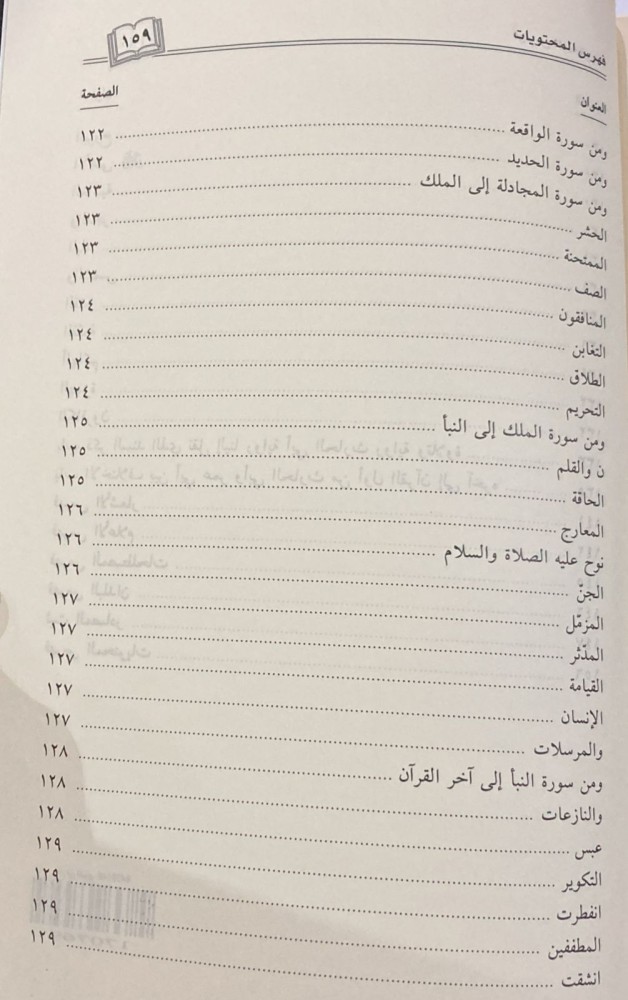 فهرس المحتويات ١٥٩
العنوان الصفحة
ومن سورة الواقعة ........ ١٢٢
ومن سورة الحديد ........ ١٢٢
ومن سورة المجادلة إلى الملك ........ ١٢٣
الحشر ........ ١٢٣
الممتحنة ........ ١٢٣
الصف ........ ١٢٣
المنافقون ........ ١٢٤
التغابن ........ ١٢٤
الطلاق ........ ١٢٤
التحريم ........ ١٢٤
ومن سورة الملك إلى النبأ ........ ١٢٥
ن والقلم ........ ١٢٥
الحاقة ........ ١٢٥
المعارج ........ ١٢٦
نوح عليه الصلاة والسلام ........ ١٢٦
الجنّ ........ ١٢٦
المزمّل ........ ١٢٧
المدّثر ........ ١٢٧
القيامة ........ ١٢٧
الإنسان ........ ١٢٧
والمرسلات ........ ١٢٧
ومن سورة النبأ إلى آخر القرآن ........ ١٢٨
والنازعات ........ ١٢٨
عبس ........ ١٢٨
التكوير ........ ١٢٩
انفطرت ........ ١٢٩
المطففين ........ ١٢٩
انشقت ........ ١٢٩